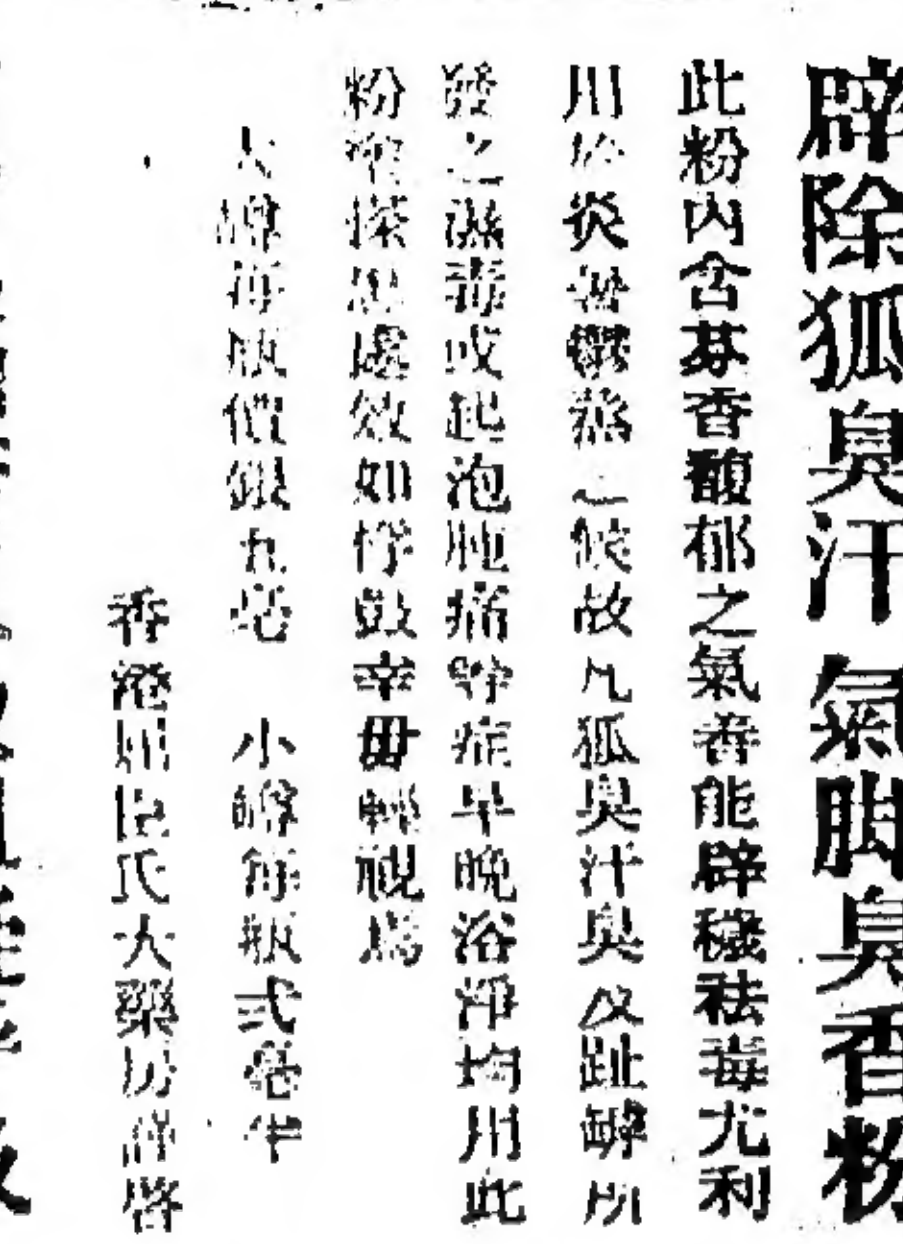 辟除狐臭汗氣脚臭香粉
此粉內含芬香馥郁之氣善能辟穢祛毒尤利
用於炎暑鬱蒸之候故凡狐臭汗臭及趾罅所
發之濕毒或起泡腫痛等症早晚浴淨均用此
粉擦患處效如桴鼓幸毋輕視焉
大罇每瓶價銀九毫 小罇每瓶式毫半
香港屈臣氏大藥房謹啓